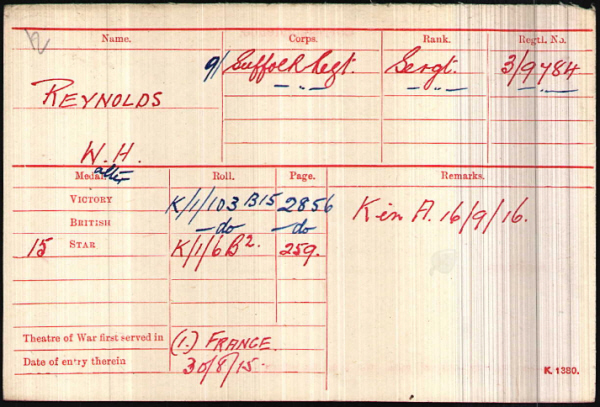 Name. Corps. Rank. Regtl. No.
REYNOLDS 9/ Suffolk Regt. Sergt. 3/9784
— „ — — „ — — „ —
W. H.
Medal. Roll. Page. Remarks.
VICTORY K/1/103 B15 2856 K in A. 16/9/16.
BRITISH — do — do
15 STAR K/1/6 B2. 259.
Theatre of War first served in (1.) FRANCE.
Date of entry therein 30/8/15.
K. 1380.